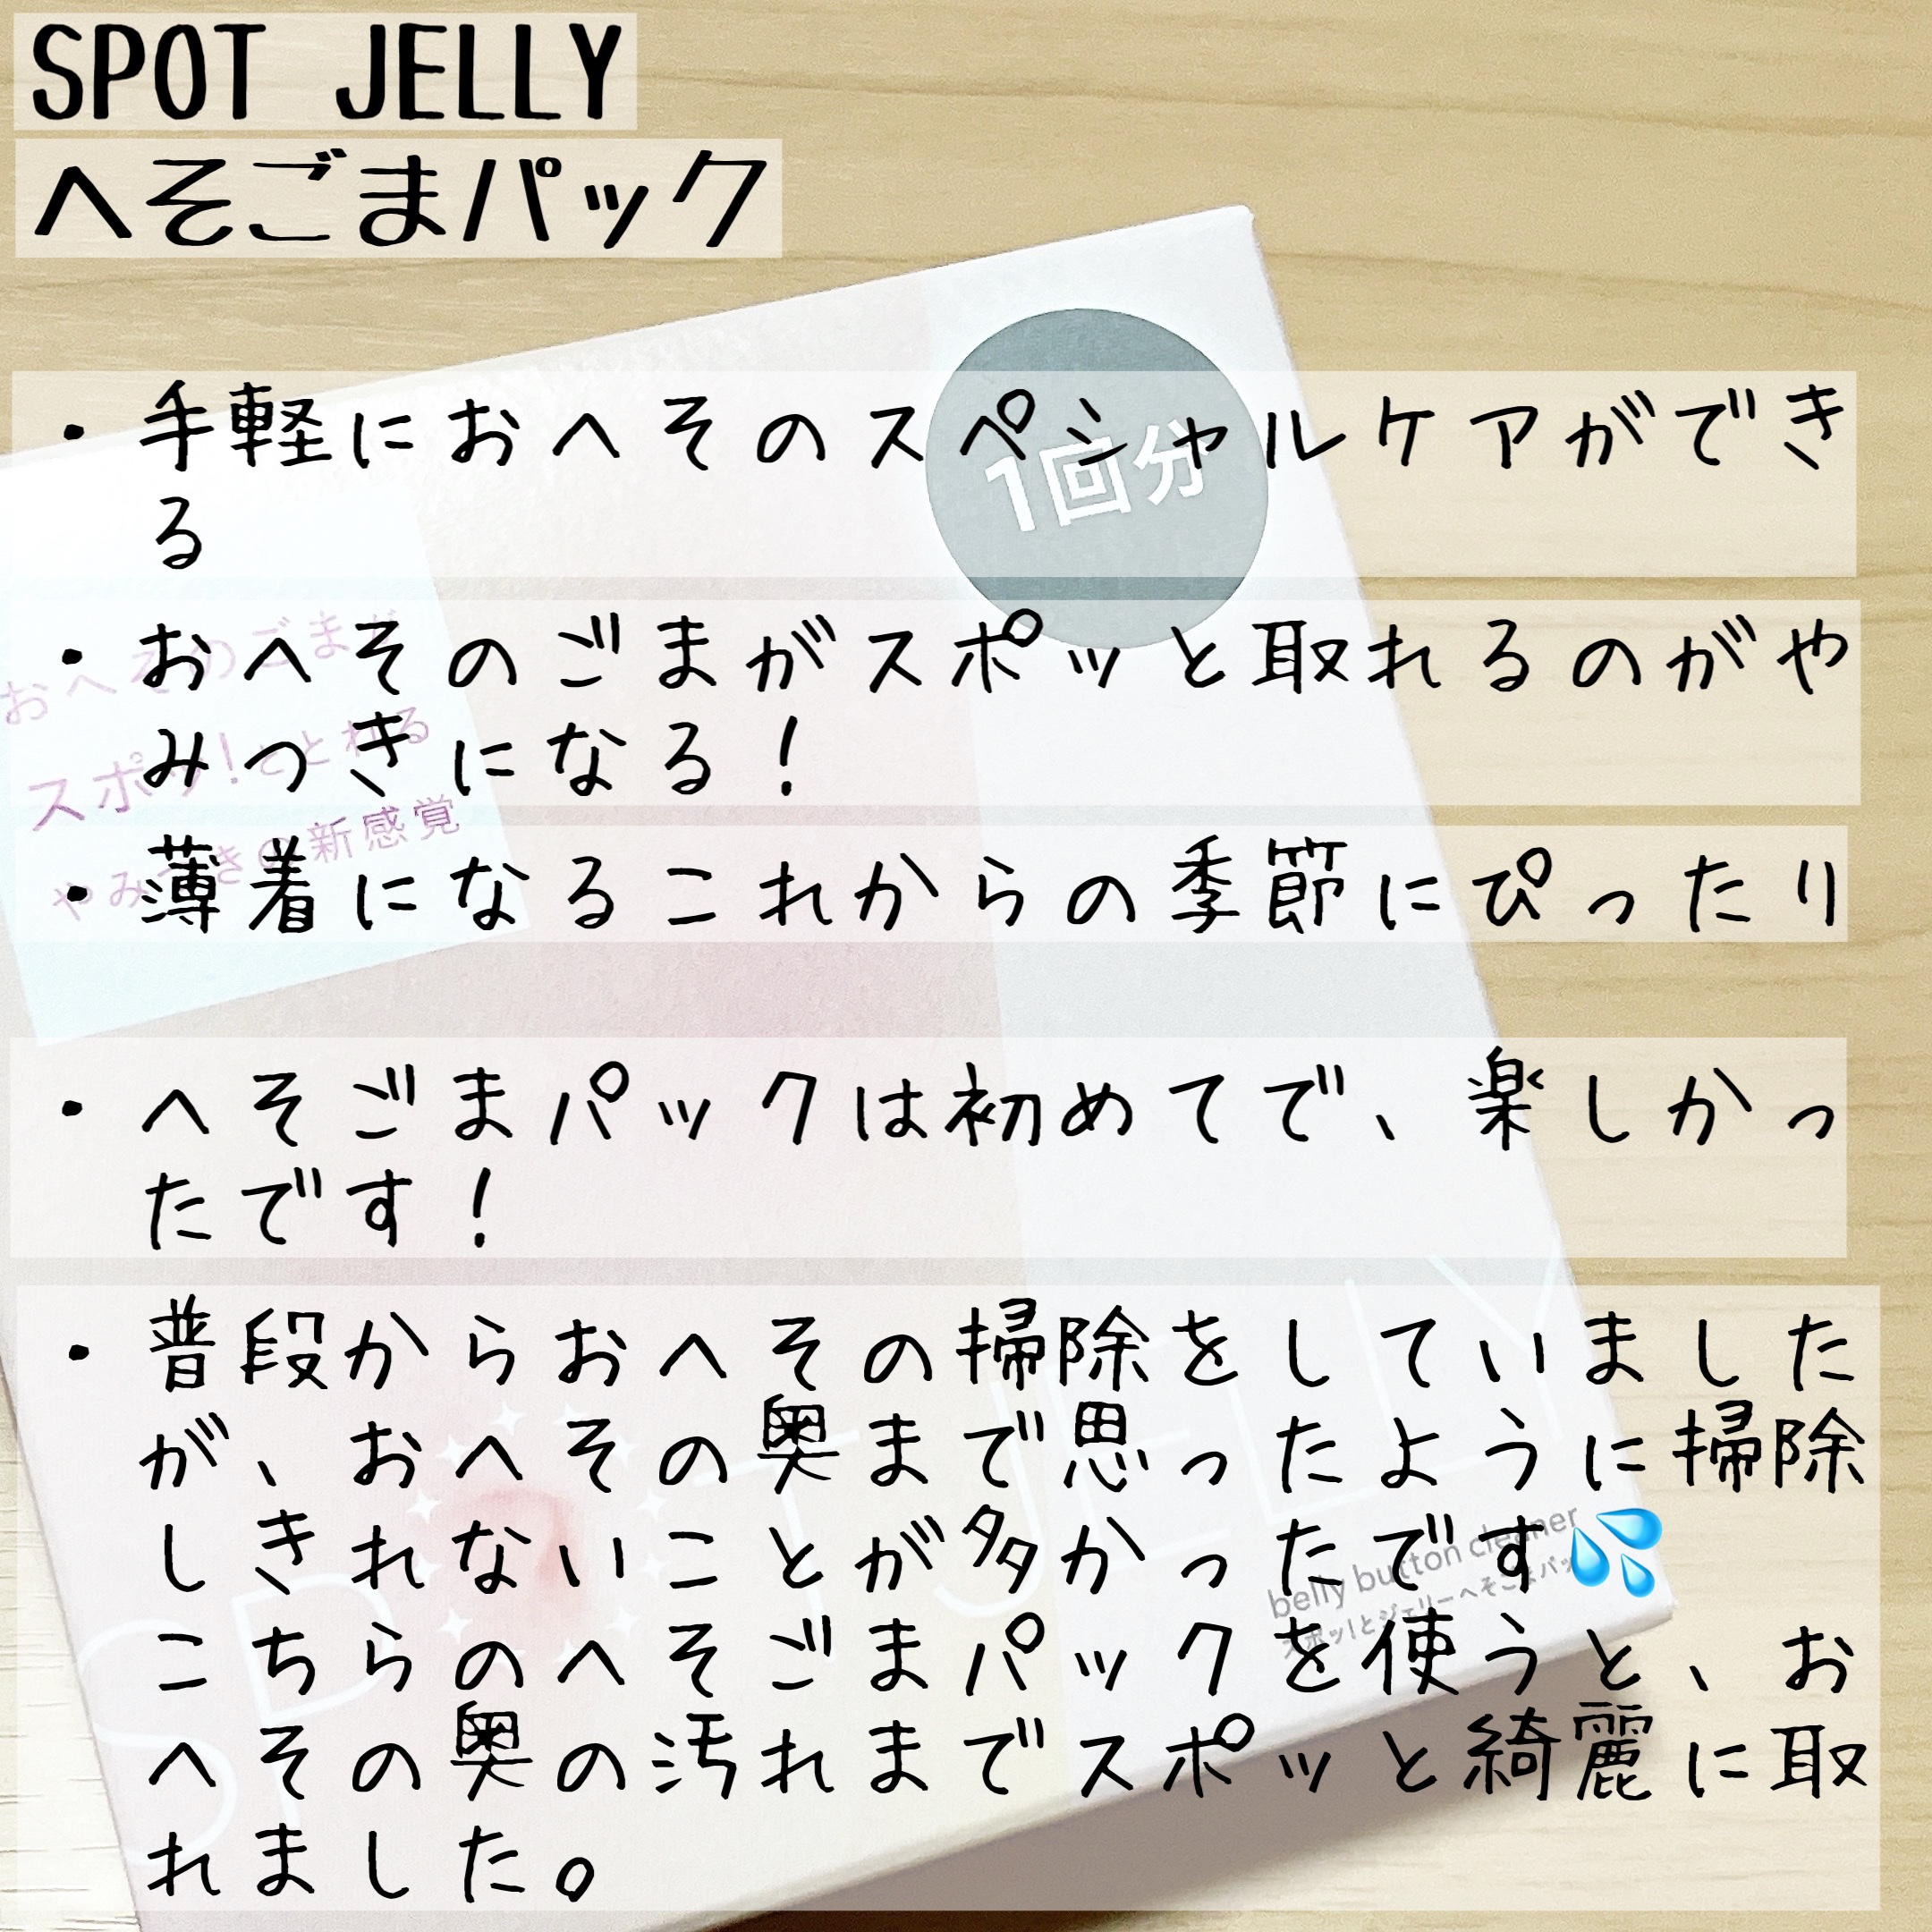 SPOT JELLY
へそごまパック
・手軽におへそのスペシャルケアができ
る
1回分
・おへそのごまがスポッと取れるのがや
みつきになる！
・薄着になるこれからの季節にぴったり
おへそのごまが
スポッ!ととれる
やみつきの新感覚
・へそごまパックは初めてで、楽しかっ
たです！
・普段からおへその掃除をしていました
が、おへその奥まで思ったように掃除
しきれないことが多かったです💦
こちらのへそごまパックを使うと、お
へその奥の汚れまでスポッと綺麗に取
れました。
SPOT JELLY
belly button cleaner
スポッ!とジェリーへそごまパック